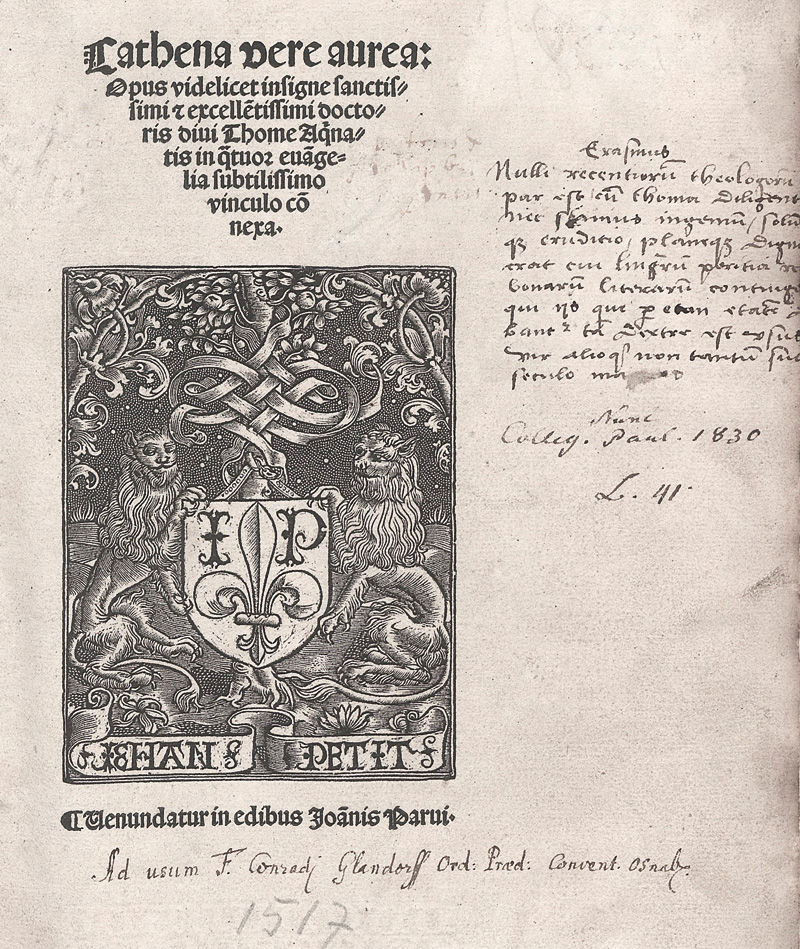 Cathena vere aurea:
Opus videlicet insigne sanctis/
simi ⁊ excellētissimi docto/
ris diui Thome Aq̄na/
tis in q̄tuor euāge=
lia subtilissimo
vinculo cō
nexa.
Erasmus
Nulli recentiorū theologorū
par est cū thoma diligent
nec sanius ingeniū, solid
eruditio, planeqꝫ dign
erat cui linguarū peritia re
bonarū literarū conting
qui iis que p eam etatē
dextre est vsus
vir alioqͥ non tantū suo
seculo
Nunc
Colleg. Paul. 1830
L. 41.
I P
IEHAN PETIT
¶ Uenundatur in edibus Joānis Parui.
Ad usum F. Conradj Glandorff Ord: Præd: Convent. Osnab.
1517